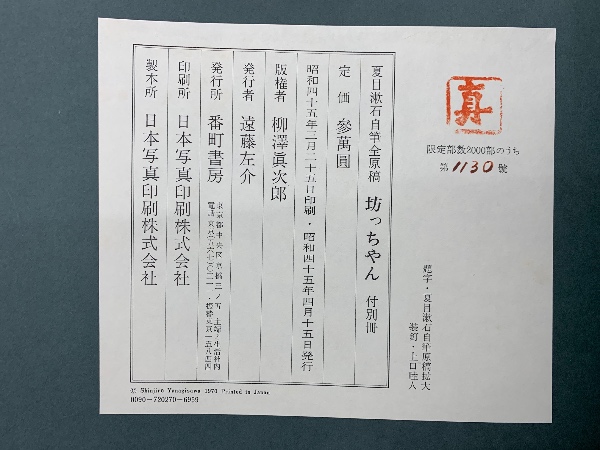 真
限定部数2000部のうち
第1130號
題字・夏目漱石自筆原稿拡大
装釘・上口睦人
夏目漱石自筆全原稿 坊っちやん 付別冊
定価 參萬圓
昭和四十五年三月二十五日印刷・昭和四十五年四月十五日発行
版権者 柳澤眞次郎
発行者 遠藤左介
発行所 番町書房
印刷所 日本写真印刷株式会社
製本所 日本写真印刷株式会社
© Shinjiro Yanagisawa 1970 Printed in Japan
0090-720270-6959